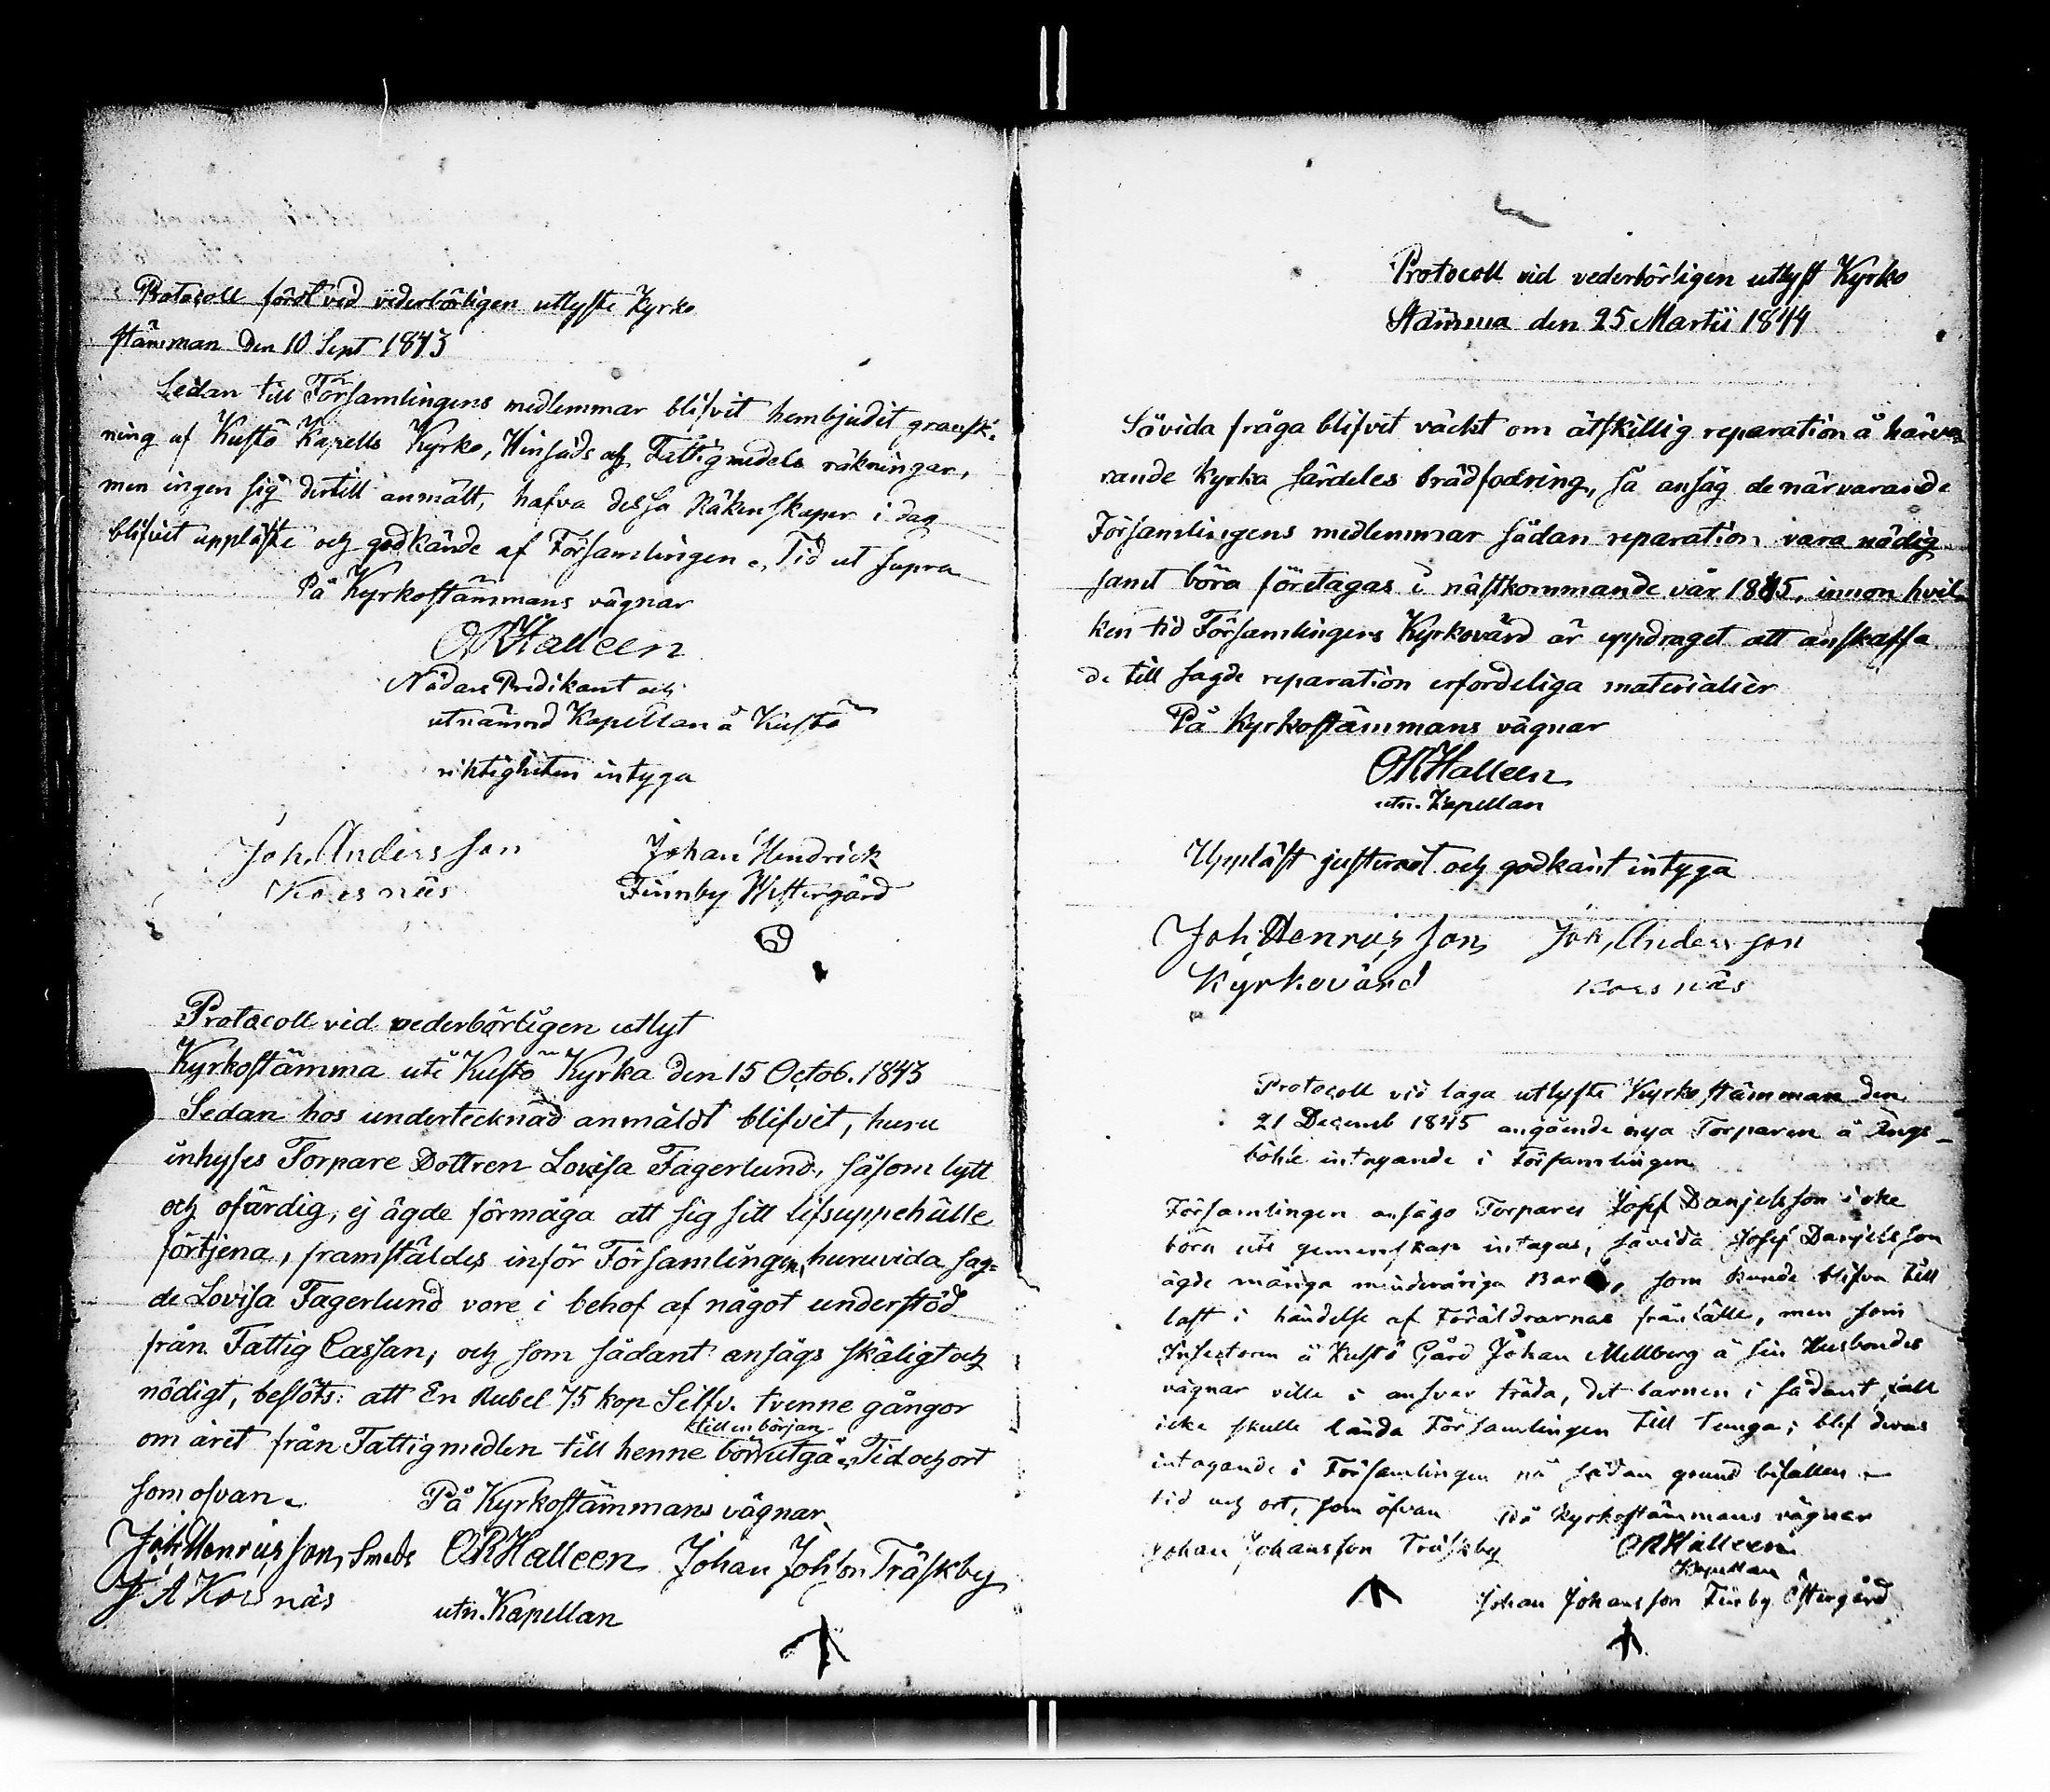 Protocoll fördt vid vederbörligen utlyste Kyrko
stämman den 10 Sept 1843
Sedan till Församlingens medlemmar blifvit hembjudit gransk-
ning af Kustö Kapells Kyrko, och Fattigmedels räkningar,
men ingen sig dertill anmält, hafva dessa Räkenskaper i dag
blifvit uppläste och godkände af Församlingen. Tid ut supra
På Kyrkostämmans vägnar
ORHalleen
Nådens Predikant och
utnämnd Kapellan å Kustö
riktigheten intyga
Joh. Andersson
Korsnäs
Johan Hendrick
Finnby Westergård
Protocoll vid vederbörligen utlyst
Kyrkostämma uti Kustö Kyrka den 15 Octob. 1843
Sedan hos undertecknad anmäldt blifvit, huru
inhyses Torpare Dottren Lovisa Fagerlund, såsom lytt
och ofärdig, ej ägde förmåga att sig sitt lifsuppehälle
förtjena, framställdes inför Församlingen, huruvida sag=
de Lovisa Fagerlund vore i behof af något understöd
från Fattig Cassan, och som sådant ansågs skäligt och
nödigt, beslöts: att En Rubel 75 kop Silfv. tvenne gångor
till en början
om året från Fattigmedlen till henne bör utgå. Tid och ort
som ofvan.
På Kyrkostämmans vägnar
Joh Henricsson, Smeds ORHalleen Johan Johsson Träskby
J A Korsnäs utn. Kapellan
Protocoll vid vederbörligen utlyst Kyrko
Stämma den 25 Martii 1844
Såvida fråga blifvit väckt om åtskillig reparation å härva
rande Kyrka särdeles brädfodring, så ansåg de närvarande
Församlingens medlemmar sådan reparation vara nödig
samt böra företagas i nästkommande vår 1845, innon hvil-
ken tid Församlingens Kyrkovärd är uppdraget att anskaffa
de till sagde reparation erfordeliga materialier
På Kyrkostämmans vägnar
ORHalleen
utn. Kapellan
Uppläst justerat och godkänt intyga
Joh, Henricsson
Kyrkovärd
Joh, Andersson
Korsnäs
Protocoll vid laga utlyste Kyrkostämman den
21 Decemb 1845 angående nya Torparen å Ängs-
intagande i Församlingen
Församlingen ansågo Torparen Josef Danjelsson icke
böra uti gemenskap intagas, såvida Josef Danjelsson
ägde många minderåriga Barn, som kunde blifva till
last i händelse af Föräldrarnas frånfälle, men som
Inspectoren å Kustö Gård Johan Mellberg å sin Husbondes
vägnar ville i ansvar träda, det barnen i sådant fall
icke skulle lända Församlingen till tunga; blef deras
intagande i Församlingen på sådan grund bifallen.
tid och ort, som ofvan På Kyrkostämmans vägnar
Johan Johansson Träskby ORHalleen
Kapellan
Johan Johansson Finby Östergård